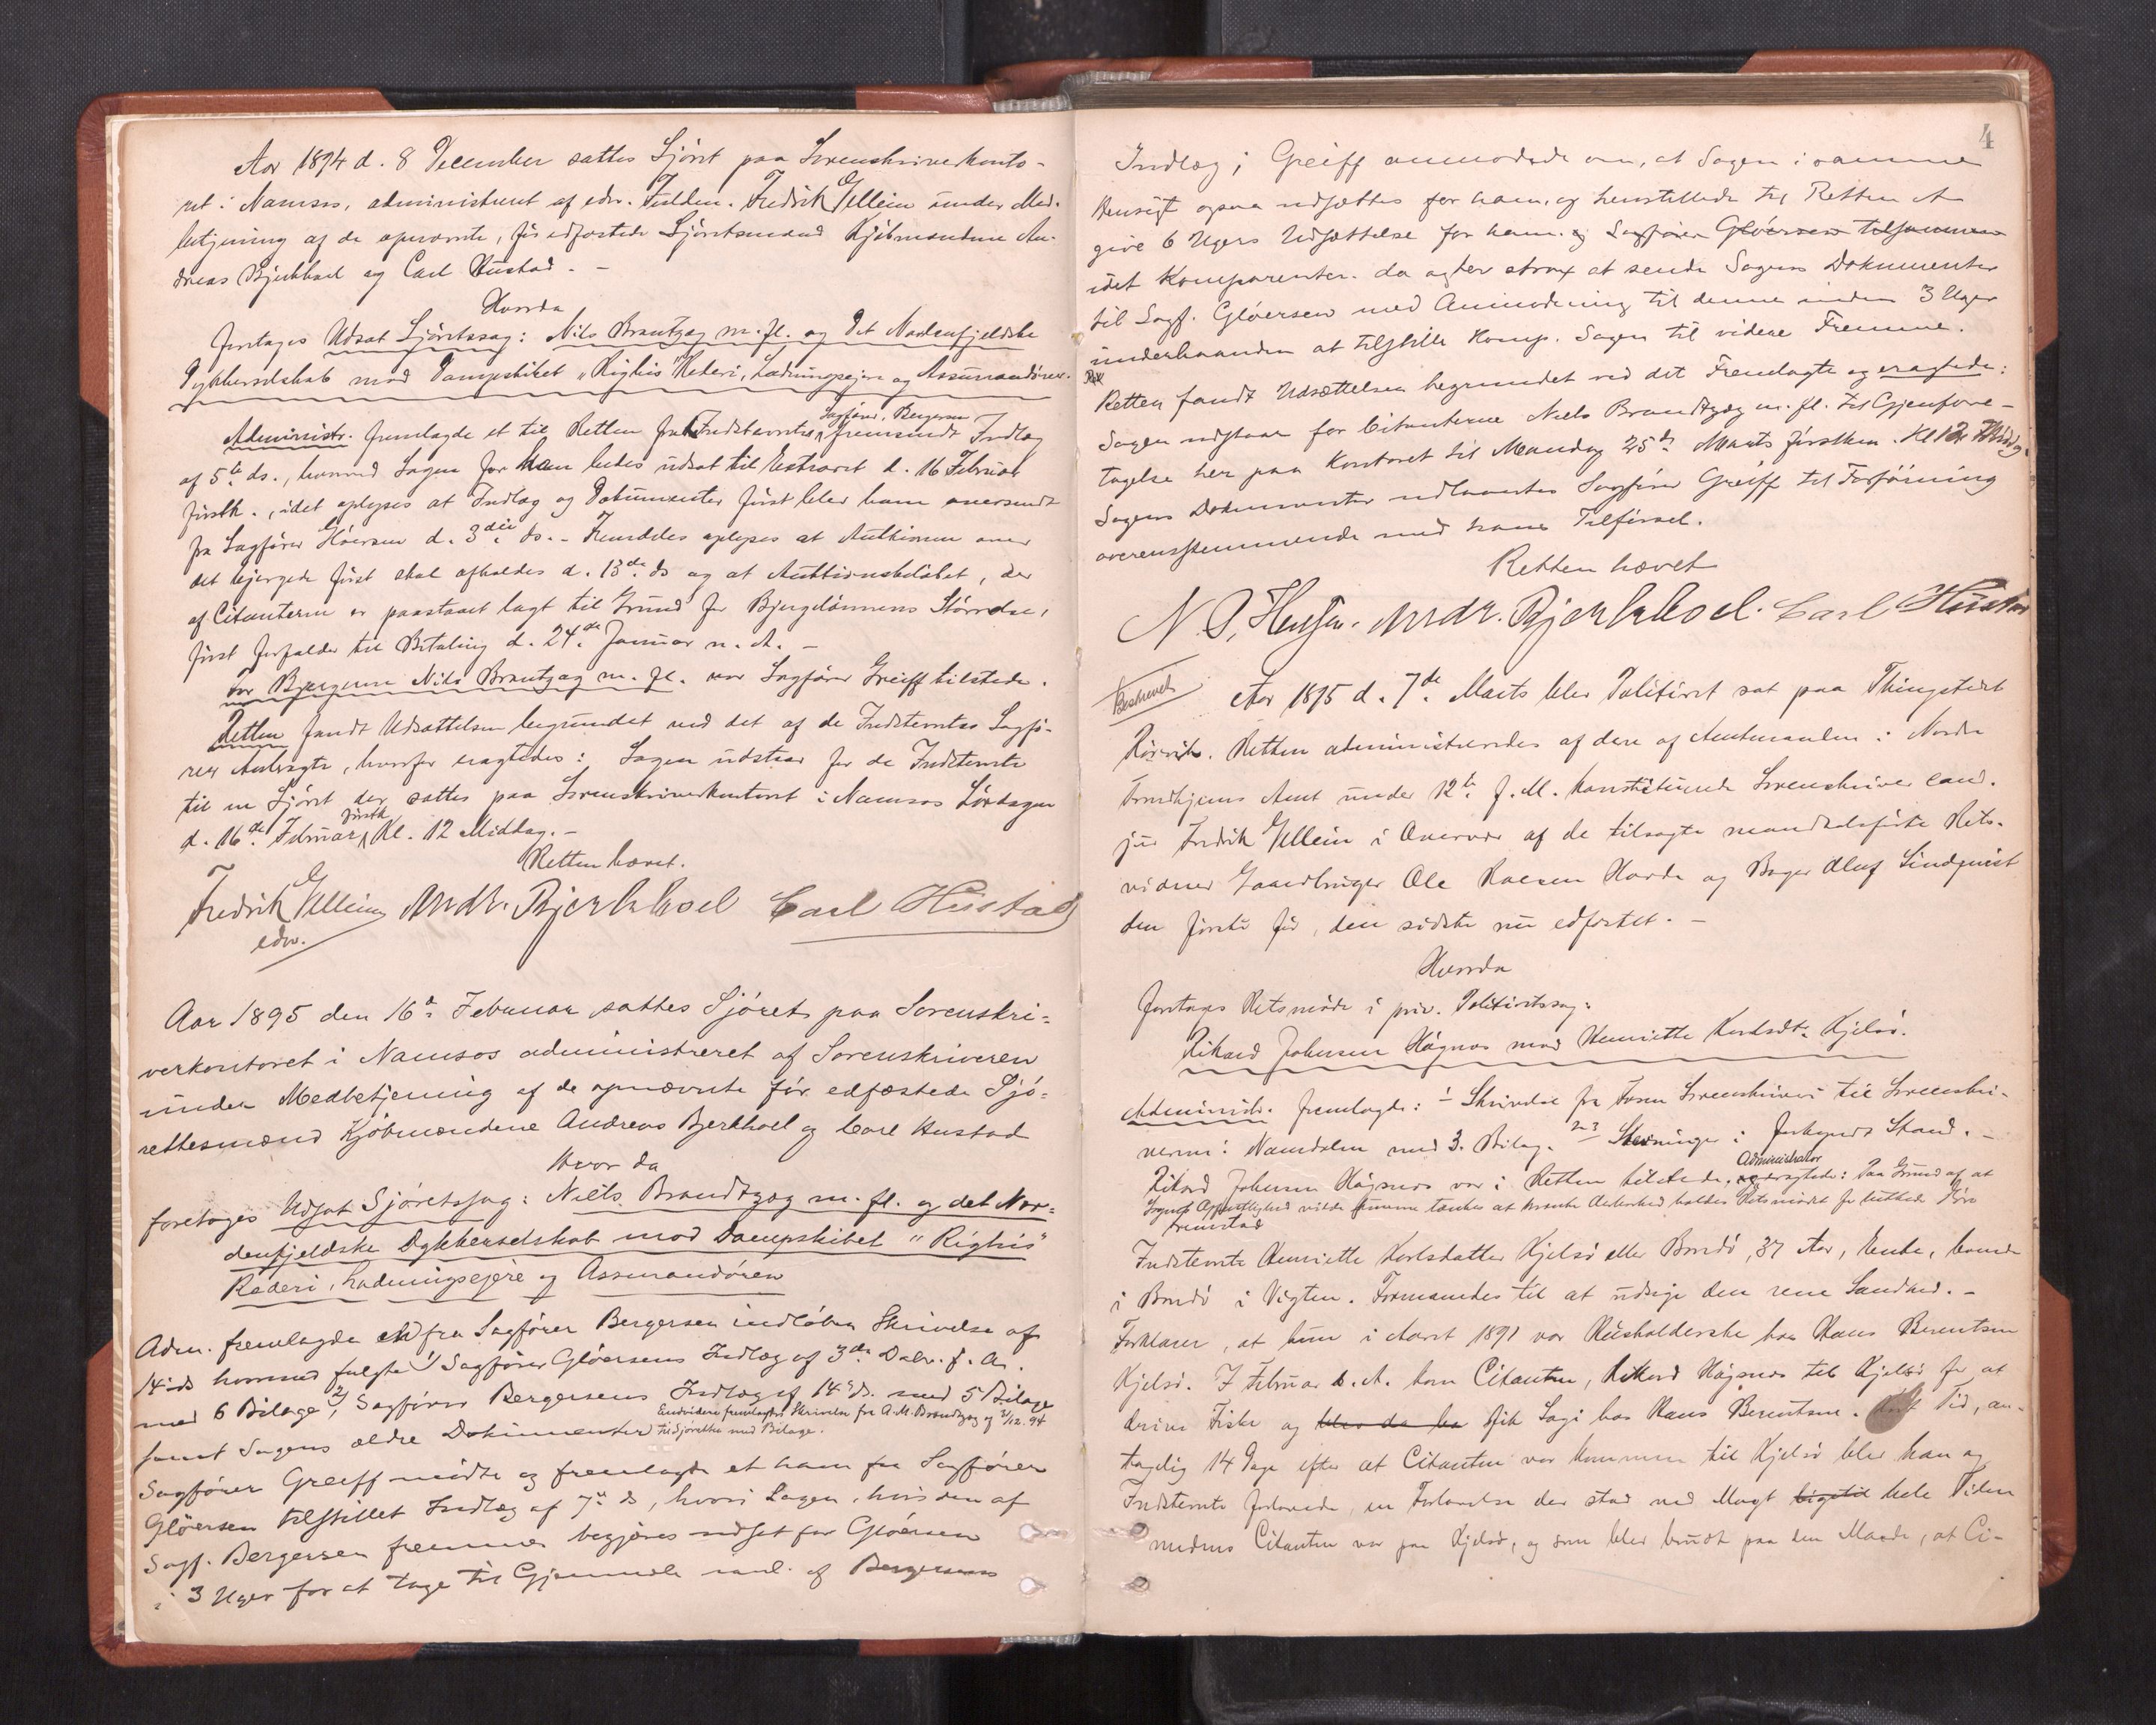 Aar 1894 d. 8 December sattes Sjöret paa Sorenskriverkonto-
ret i Namsos, administreret af edsv. Fuldm. Fredrik Gellein under Med-
betjening af de opnævnte, før edfæstede Sjöretsmænd Kjöbmændene An-
dreas Bjerkhoel og Carl Hustad. -
Hvorda
foretages Udsat Sjöretssag: Nils Brantzæg m. fl. og Det Nordenfjeldske
Dykkerselskab mod Dampskibet "Righis" Rederi, Ladningsejere og Assurandörer.
Administr. fremlagde et til Retten fra Indstævntes Sagförer, Bergersen fremsendt Indlæg
af 5te ds., hvorved Sagen for ham bedes udsat til Extraret d. 16 Februar
förstk., idet oplyses at Indlæg og Dokumenter först blev ham oversendt
fra Sagförer Glöersen d. 3die ds. - Fremdeles oplyses at Auktionen over
det bjergede först skal afholdes d. 13de ds og at Auktionsbelöbet, der
af Citanterne er paastaaet lagt til Grund for Bjergelönnens Störrelse,
först forfalder til Betaling d. 24de Januar n. A. -
For Bjergerne Nils Brantzæg m. fl. var Sagförer Greiff tilstede.
Retten fandt Udsættelsen begrundet ved det af de Indstevntes Sagfö-
rer Anbragte, hvorfor eragtedes: Sagen udstaar for de Indstevnte
til en Sjöret der sættes paa Sorenskriverkontoret i Namsos Lördagen
d. 16de Februar förstk Kl. 12 Middag. -
Retten hævet.
Fredrik Gellein Andr. Bjerkhoel Carl Hustad
edsv.
Aar 1895 den 16de Februar sattes Sjöret paa Sorenskri=
verkontoret i Namsos administreret af Sorenskriveren
under Medbetjening af de opnævnte för edfæstede Sjö=
rettesmænd Kjöbmændene Andreas Bjerkhoel og Carl Hustad
Hvor da
foretoges Udsat Sjöretssag: Niels Brandtzæg m. fl. og det Nor=
denfjeldske Dykkerselskab mod Dampskibet "Righis"
Rederi, Ladningsejere og Assurandören
Adm. fremlagde en fra Sagförer Bergersen indlöben Skrivelse af
14 ds hvormed fulgte 1) Sagförer Glöersens Indlæg af 3de Debr. f. A.
med 6 Bilage 2) Sagförer Bergersens Indlæg af 14 ds. med 5 Bilage
samt Sagens ældre Dokumenter Endvidere fremlagdes Skrivelse fra A. M. Brandtzæg af 3/12. 94 til Sjöretten med Bilage.
Sagförer Greiff mödte og fremlagde et ham fra Sagförer
Glöersen tilstillet Indlæg af 7de ds, hvori Sagen, hvis den af
Sagf. Bergersen fremmes begjæres udsat for Glöersen
i 3 Uger for at tage til Gjenmæle mod. af Bergersens
4
Indlæg; Greiff anmodede om, at Sagen i samme
Hensigt ogsaa udsættes for ham, og henstillede til Retten at
give 6 Ugers Udsættelse for ham. og Sagförer Glöersen tilsammen
idet Komparenten da agter strax at sende Sagens Dokumenter
til Sagf. Glöersen med Anmodning til denne inden 3 Uger
underhaanden at tilstille Komp. Sagen til videre Fremme.
Ret
Retten fandt Udsættelsen begrundet ved det Fremlagte og eragtede:
Sagen udstaar for Citanterne Niels Brandtzæg m. fl. til Gjenfore-
tagelse her paa Kontoret til Mandag 25de Marts förstkm. Kl 12 Middag.
Sagens Dokumenter udlaantes Sagförer Greiff til Forföining
overensstemmende med hans Tilförsel.
Retten hævet
Andr. Bjerkhoel. Carl Hustad
Beskrevet
Aar 1895 d. 7de Marts blev Politiret sat paa Thingstedet
Rörvik. Retten administreredes af den af Amtmanden i Nordre
Trondhjems Amt under 12te f. M. konstituerede Sorenskriver cand.
jur Fredrik Gellein i Overvær af de tilsagte mandtalsförte Rets-
vidner Gaardbruger Ole Hoesen Havde og Bager Oluf Lindqvist
den förste för, den sidste nu edfæstet. -
Hvorda
foretoges Retsmöde i priv. Politiretssag:
Rikard Johnsen Hógnes mod Henriette Karlsdt. Kjelsö.
Administr. fremlagde: 1 Skrivelse fra Sorenskriveri til Sorenskri-
veren i Namdalen med 3. Bilag. 2-3 Stevninger i forkyndt Stand. -
Rikard Johnsen Högnes var i Retten tilstede, Administrator eragtede: Paa Grund af at
Sagens Offentlighed vilde kunne tænkes at krænke Ærbarhed holdes Retsmödet for lukkede Döre
Fremstod
Indstevnte Henriette Karlsdatter Kjelsö eller Bondö, 37 Aar, Enke, boende
i Bondö i Vigten. Formanedes til at udsige den rene Sandhed. -
Forklarer, at hun i Aaret 1891 var Husholderske hos Hans Berentsen
Kjelsö. I Februar s. A. kom Citanten, Rikard Högnes til Kjelsö for at
drive Fiske og blev da ha fik Logi hos Hans Berentsen. Kort Tid, an-
tagelig 14 Dage efter at Citanten var kommen til Kjelsö blev han og
Indstevnte forlovede, en Forlovelse der stod ved Magt ligetil hele Tiden
medens Citanten var paa Kjelsö, og som blev brudt paa den Maade, at Ci-